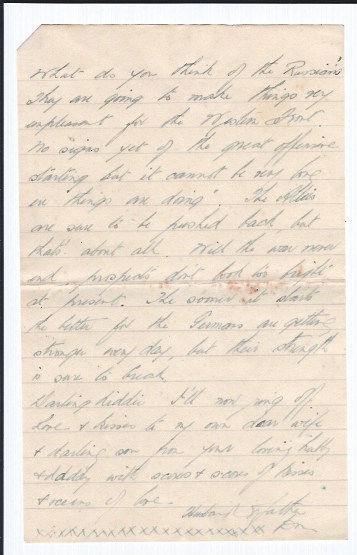 What do you think of the Russians
They are going to make things very
unpleasant for the Western Front.
No signs yet of the great offensive
starting but it cannot be very long
ere things are doing". The Allies
are sure to be pushed back but
that's about all. Will the war never
end prospects don't look too bright
at present. The sooner it starts
the better for the Germans are getting
stronger every day, but their strength
is sure to break
Darling kiddie I'll now ring off
love & kisses to my own dear wife
& darling son from your loving hubby
& daddy with scores & scores of kisses
& oceans of love.
Husband & father
Don
xxxxxxxxxxxxxxxxxxx